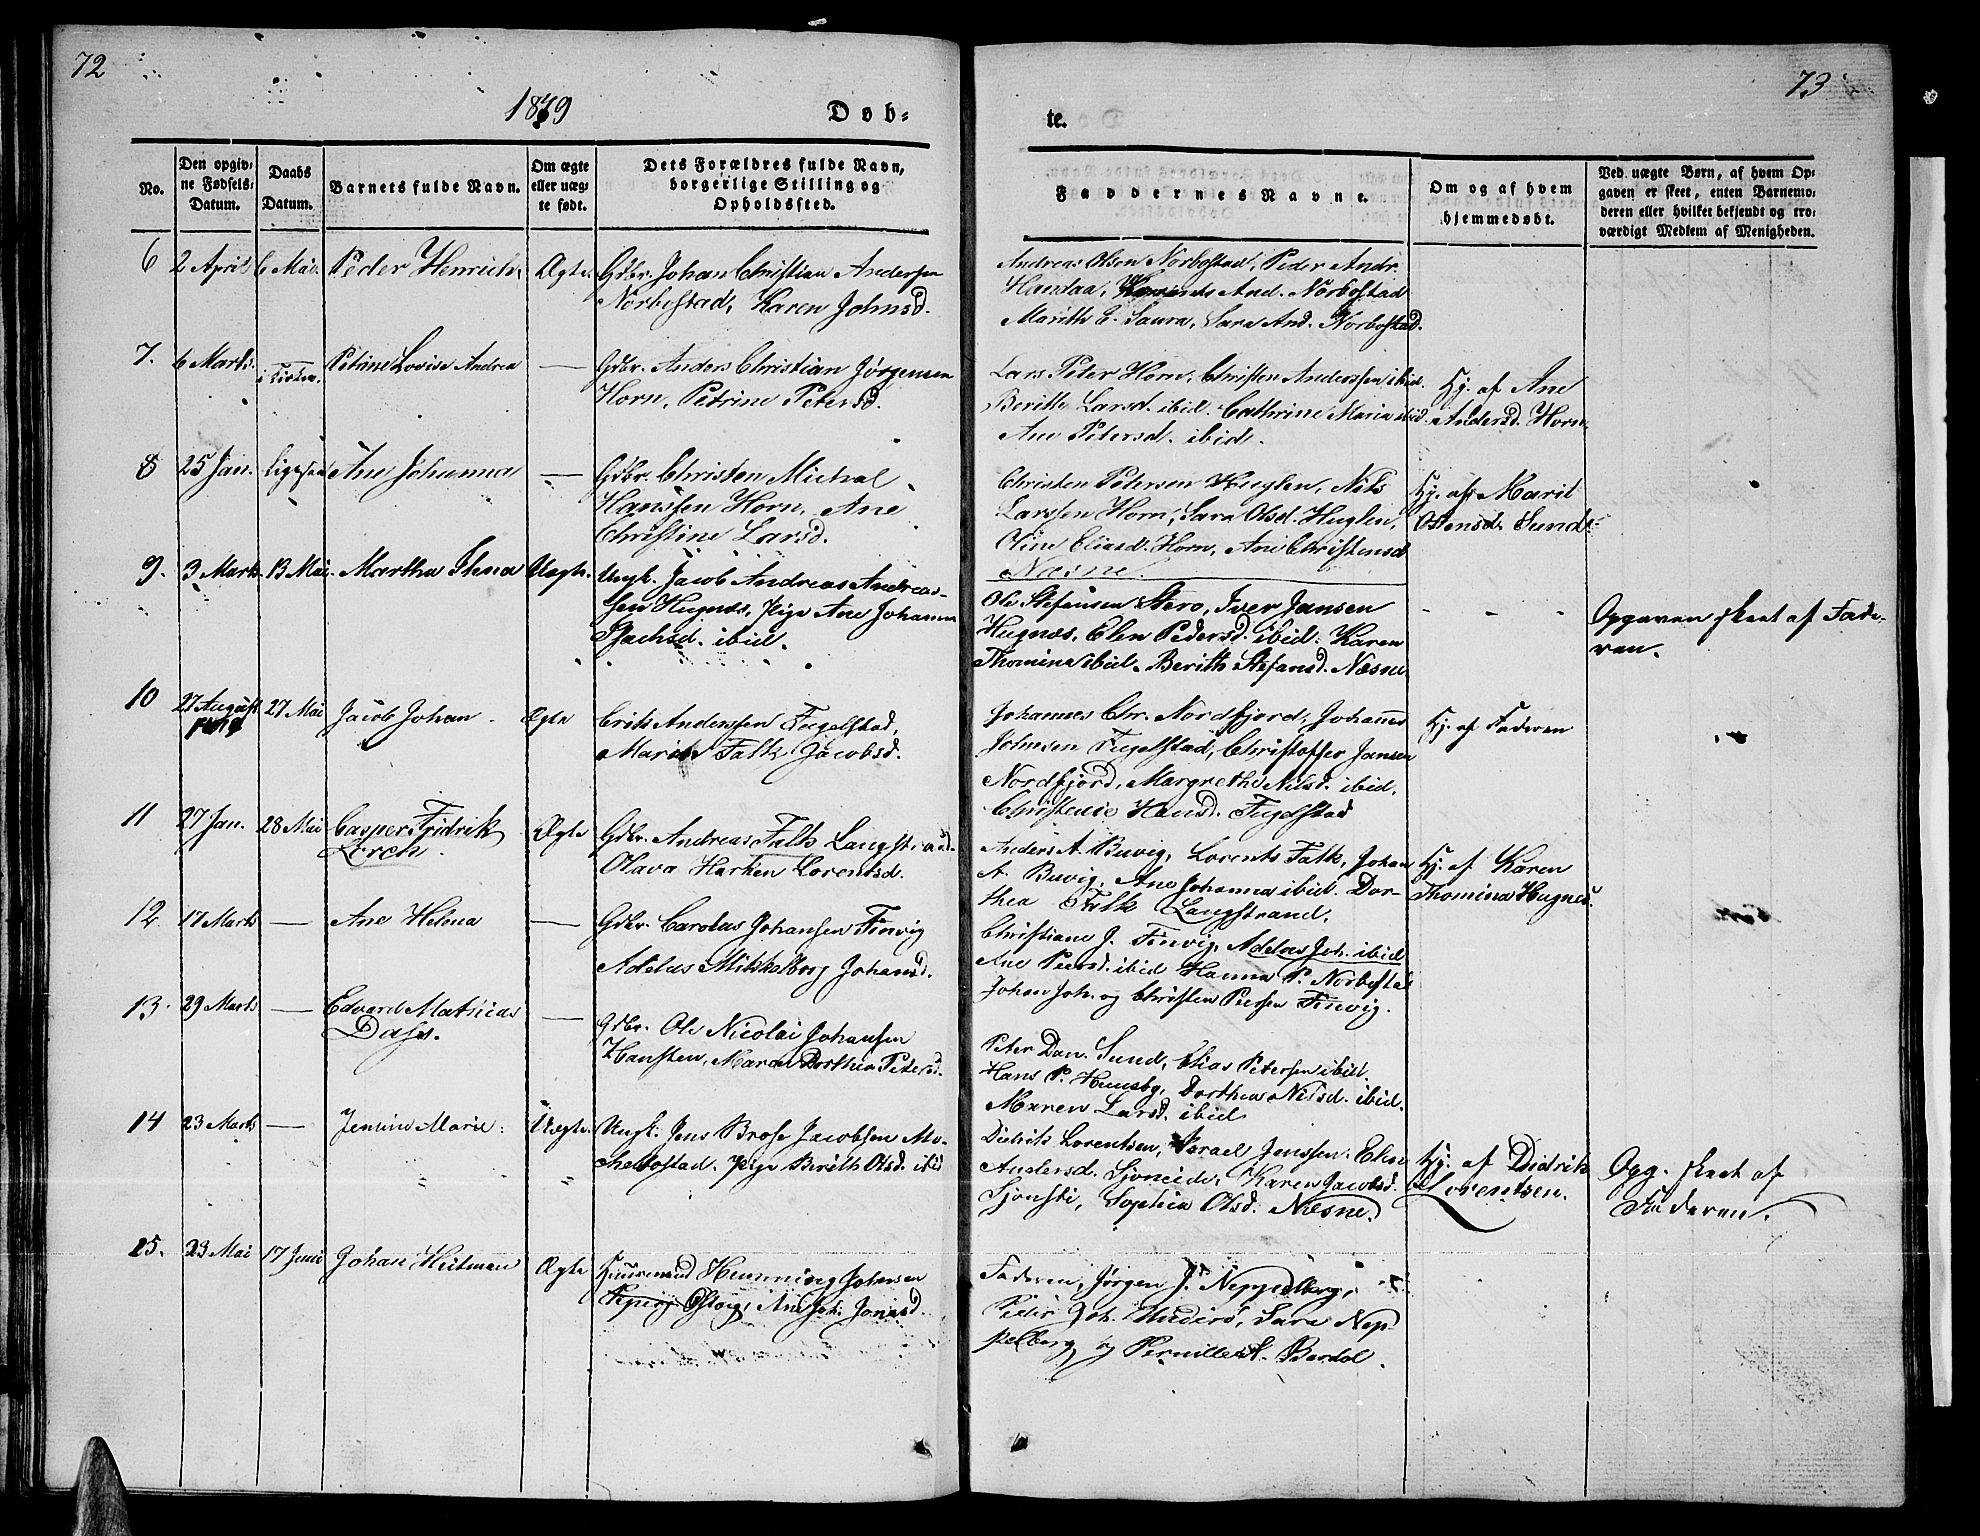 72
73
1849
Døb-
te.
No.
Den opgiv-
ne Fødsels-
Datum.
Daabs
Datum.
Barnets fulde Navn.
Om ægte
eller uæg-
te født.
Dets Forældres fulde Navn,
borgerlige Stilling og
Opholdssted.
Faddernes Navne.
Om og af hvem
hjemmedøbt.
Ved uægte Børn, af hvem Op-
gaven er skeet, enten Barnemo-
deren eller hvilket bekjendt og tro-
værdigt Medlem af Menigheden.
6 2 April 6 Mai Peder Henrich Ægte Gdbr. Johan Christian Andersen
Norbostad, Karen Johnsd.
Andreas Olsen Norbostad, Peder Andr.
Handaa, And. Norbostad
Marith E. Saura, Sara And. Norbostad.
7. 6 Marts i Kirken. Petrine Lovise Andrea — Gdbr. Anders Christian Jørgensen
Horn, Petrine Petersd.
Lars Peter Horn, Christen Anderssen ibid.
Berith Larsd. ibid. Cathrine Maria ibid.
Ane Petersd. ibid.
Hj. af Ane
Andersd. Horn
8 25 Jan. ligesaa Ane Johanna — Gdbr. Christen Michal
Hanssen Horn, Ane
Christine Larsd.
Christen Petersen Huglen, Nils
Larssen Horn, Sara Olsd. Huglen,
Oline Eliasd. Horn, Ane Christensd
Næsne.
Hj. af Marit
Ostensd. Sund
9. 3 Marts 13 Mai. Martha Uægte. Ungk. Jacob Andreas Andreas-
sen Hugnæs, Pige Ane Johanna
ibid.
Ole Stefensen Stero, Iver Jansen
Hugnæs, Elen Pedersd. ibid. Karen
Thomina ibid. Berith Stefansd. Næsne
- - -
Opgaven skeet af Fade-
ren.
10 27 August 27 Mai Jacob Johan Ægte Erik Anderssen Fugelstad,
Maren Falk Jacobsd.
Johannes Chr. Nordfjord, Johannes
Johnsen Fugelstad, Christoffer Jansen
Nordfjord, Margrethe Nilsd. ibid.
Hansd. Fugelstad
Hj. af Faderen
11 27 Jan. 28 Mai Casper Fridrik
Lerch. Ægte Gdbr. Andreas Falk Langstrand
Olava Harken Lorentsd.
Anders A. Buvig, Lorents Falk, Johan
A. Buvig, Ane Johanna ibid. Dor-
thea Falk Langstrand.
Hj. af Karen
Thomina Hugnes.
12 17 Marts — Ane Helena — Gdbr. Carolus Johansen Finvig
Adelus Mikkelborg Johansd.
Christiane J. Finvig, Adelus Joh. ibid
Ane Peersd. ibid Hanna P. Norbostad
Johan Joh. og Christen Peersen Finvig.
13. 29 Marts — Edvard Mathias
Dass. — Gdbr. Ole Nicolai Johansen
Hansten, Maren Dorthea Petersd.
Peter Dan. Sund, Elias Petersen ibid.
Hans P. Huusby, Dorthea Nilsd. ibid.
Maren Larsd. ibid
14 23 Marts — Jensine Marie. Uægte. Ungk. Jens Brose Jacobsen Mo-
chelbostad. Pige Berith Olsd. ibid
Didrik Lorentsen, Israel Jenssen. Elen
Andersd. Sjoneide, Karen Jacobsd.
Sjonsti, Sophia Olsd. Næsne.
Hj. af Didrik
Lorentsen.
Opg. skeet af
Faderen.
15. 23 Mai 17 Juni Johan Heitman Ægte Huusmand Henning Johnsen
Ane Joh. Jonasd.
Faderen, Jørgen J. Neppelberg,
Peder Joh. Sara Nep-
pelberg og Pernille A. Bardal.